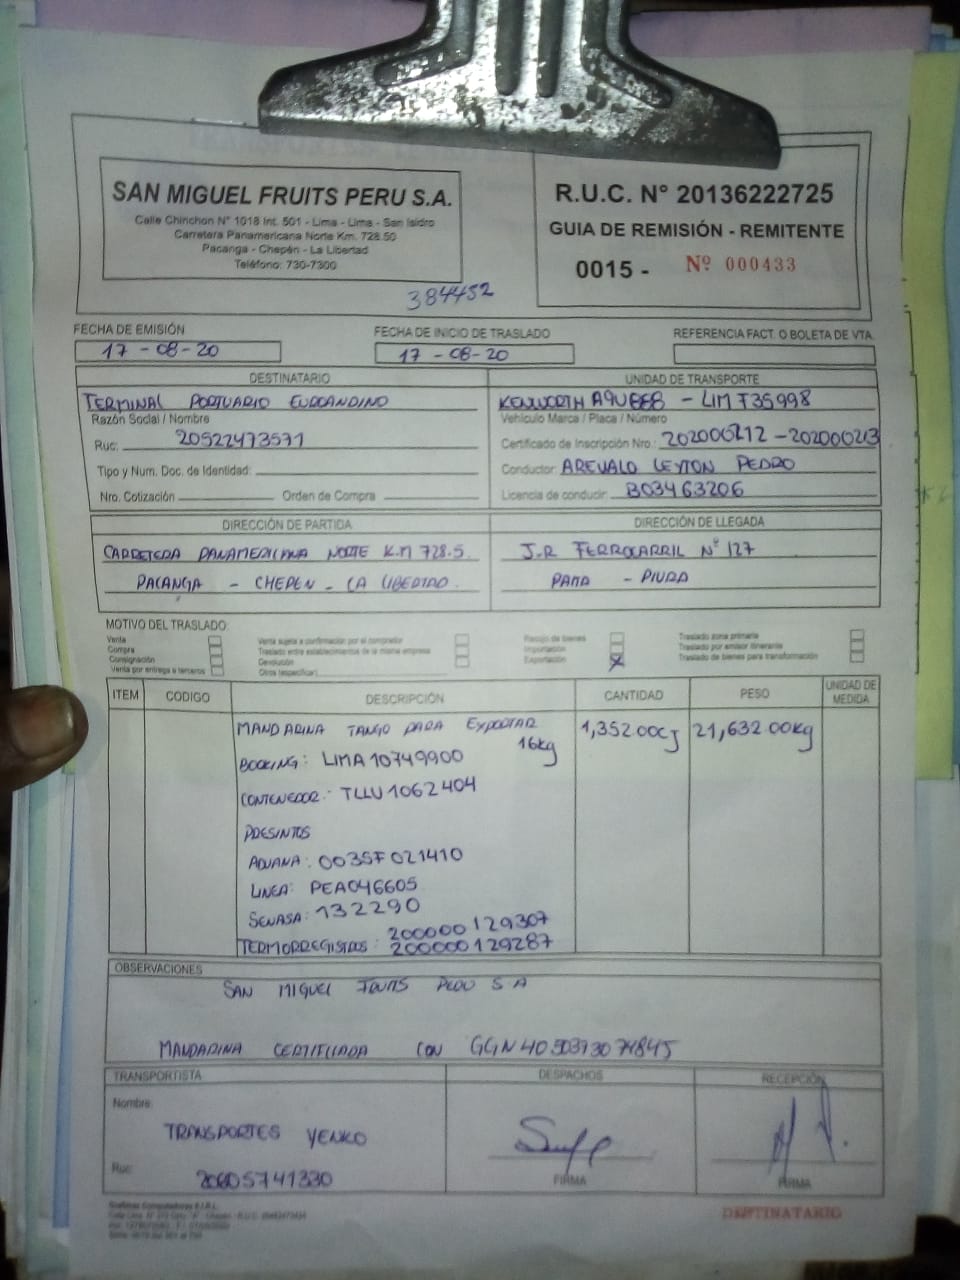 SAN MIGUEL FRUITS PERU S.A.
Calle Chinchon N° 1018 Int. 501 - Lima - Lima - San Isidro
Carretera Panamericana Norte Km. 728.50
Pacanga - Chepén - La Libertad
Teléfono: 730-7300
384452
R.U.C. N° 20136222725
GUIA DE REMISIÓN - REMITENTE
0015 - Nº 000433
FECHA DE EMISIÓN
17 - 08 - 20
FECHA DE INICIO DE TRASLADO
17 - 08 - 20
REFERENCIA FACT. O BOLETA DE VTA.
DESTINATARIO
TERMINAL PORTUARIO EUROANDINO
Razón Social / Nombre
Ruc: 20522473571
Tipo y Num. Doc. de Identidad:
Nro. Cotización Orden de Compra
UNIDAD DE TRANSPORTE
KENWORTH - LIM 735998
Vehículo Marca / Placa / Número
Certificado de Inscripción Nro.: 202006212 - 202006213
Conductor: AREVALO LEYTON PEDRO
Licencia de conducir: B03463206
DIRECCIÓN DE PARTIDA
CARRETERA PANAMERICANA NORTE K.M 728.5.
PACANGA - CHEPEN - LA LIBERTAD.
DIRECCIÓN DE LLEGADA
J.R FERROCARRIL Nº 127
PAITA - PIURA
MOTIVO DEL TRASLADO:
Venta
Compra
Consignación
Venta por entrega a terceros
Venta sujeta a confirmación por el comprador
Traslado entre establecimientos de la misma empresa
Devolución
Otros (especificar)
Recojo de bienes
Importación
Exportación X
Traslado zona primaria
Traslado por emisor itinerante
Traslado de bienes para transformación
ITEM CODIGO DESCRIPCIÓN CANTIDAD PESO UNIDAD DE MEDIDA
MANDARINA TANGO PARA EXPORTAR 1,352.00CJ 21,632.00kg
16kg
BOOKING: LIMA10749900
CONTENEDOR: TLLU1062404
PRESINTOS
ADUANA: 003SF021410
LINEA: PEA046605
SENASA: 132290
200000129307
TERMORREGISTROS: 200000129287
OBSERVACIONES
SAN MIGUEL FRUITS PERU S A
MANDARINA CERTIFICADA CON GGN 4050373074845
TRANSPORTISTA
Nombre:
TRANSPORTES YENKO
Ruc: 20605741330
DESPACHOS
FIRMA
RECEPCIÓN
FIRMA
DESTINATARIO